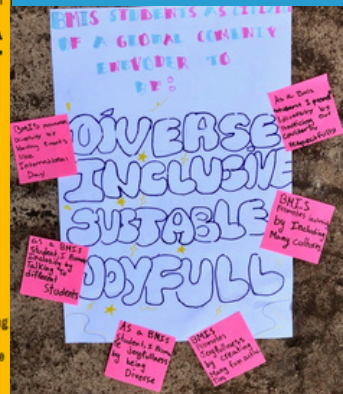 BMIS STUDENTS AS CITIZEN
OF A GLOBAL COMUNITY
ENDEVOUR TO
BE:
DIVERSE
INCLUSIVE
SUSTABLE
JOYFULL
BMIS promotes
Diversity by
Having Events
like
International
Day!
As a BMIS
diversity by
Practicing Our
Respectfully
BMIS
Promotes
by Including
Many cultures
as a BMIS
Student, I Promote
Inclusivity by
Talking to
different
Students
AS a BMIS
Student, I Promote
Joyfullness
by being
Diverse
BMIS
Promotes
Joyfullness
by creating
Many fun activities